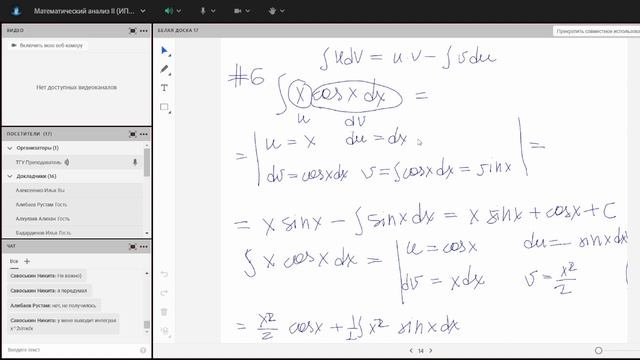 Математический анализ II (ИП...
ВИДЕО
Включить мою веб-камеру
Нет доступных видеоканалов
ПОСЕТИТЕЛИ (17)
Организаторы (1)
ТГУ Преподаватель
Докладчики (16)
Алексеенко Илья Вы
Алибаев Рустам Гость
Алкулаев Алихан Гость
Бадардинов Илья Гость
ЧАТ
Все
Савоськин Никита: Не важно)
Савоськин Никита: я передумал
Алибаев Рустам: нет, не получилось
Савоськин Никита: у меня выводит интеграл
x^2sinxdx
Введите текст чата
БЕЛАЯ ДОСКА 17
Прекратить совместное использова
∫udv = uv − ∫vdu
#6
∫ x cosx dx =
u dv
= | u = x du = dx
dv = cosxdx v = ∫cosxdx = sinx | =
= x sinx − ∫sinxdx = x sinx + cosx + C
∫ x cosx dx = | u = cosx du = − sinxdx
dv = xdx v = x²/2
= x²/2 cosx + 1/2 ∫ x² sinxdx
14